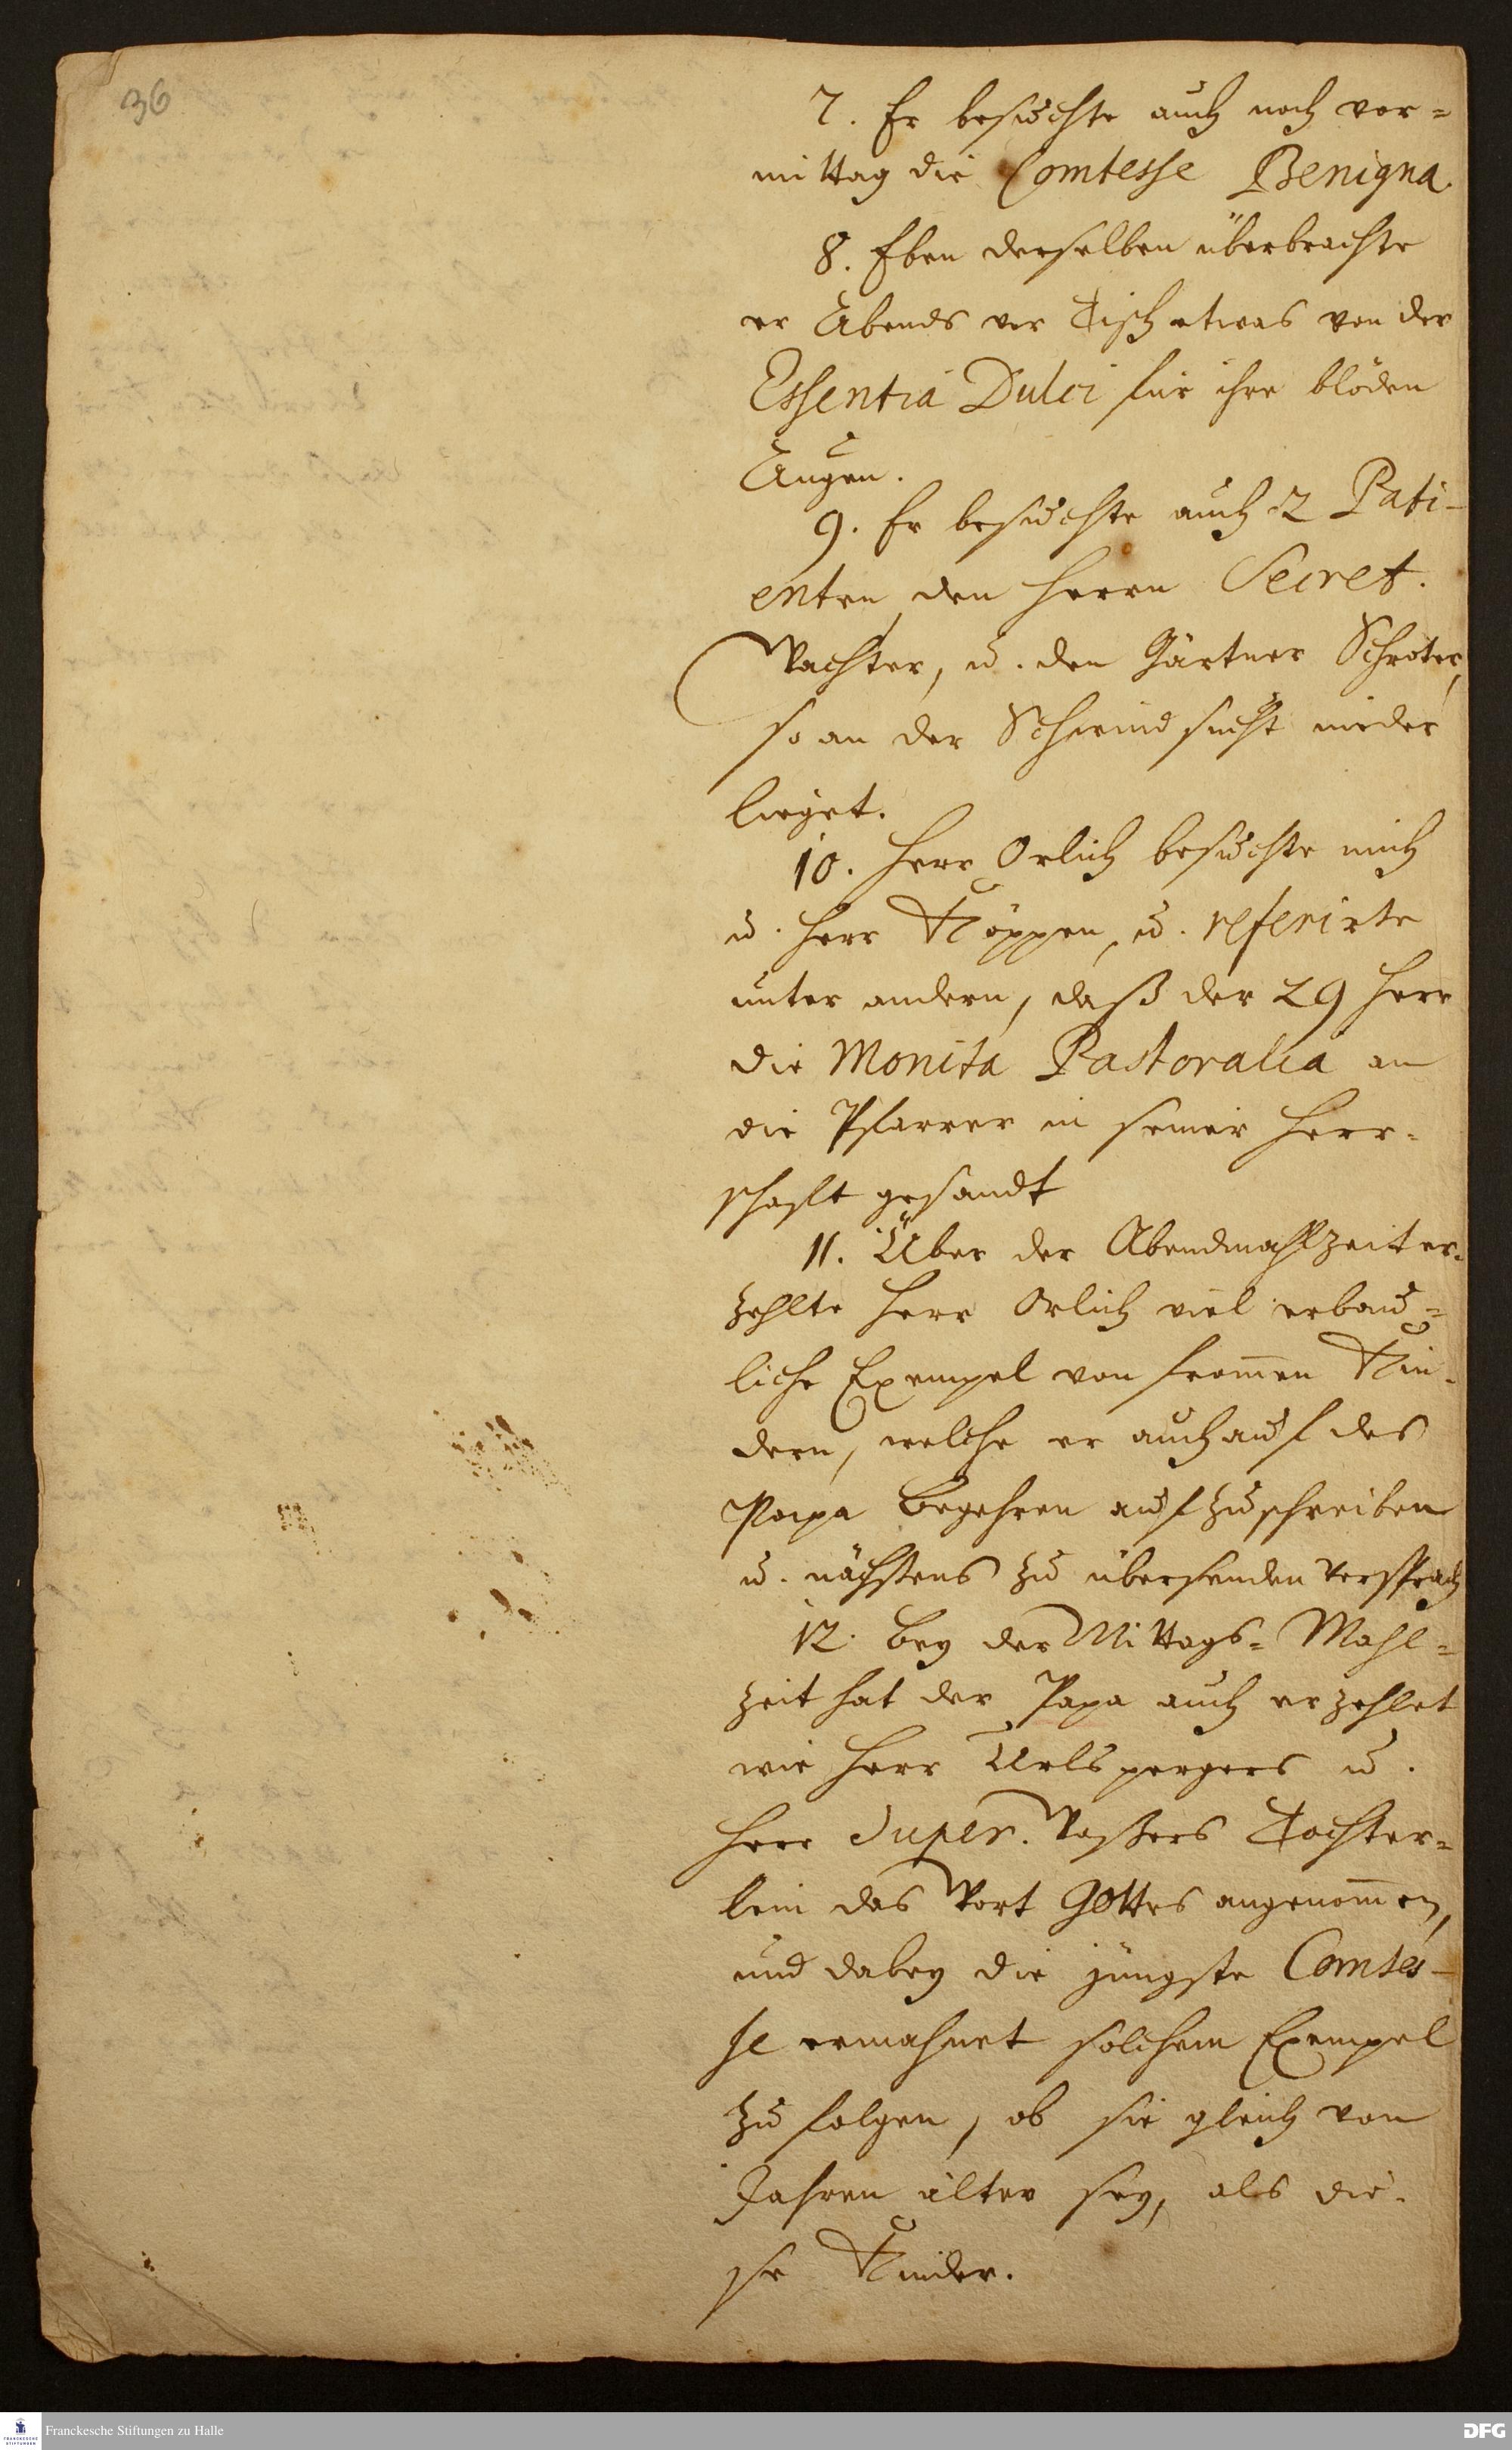 36
7. Er besuchte auch noch vor=
mittag die Comtesse Benigna.
8. Eben derselben überbrachte
er Abends vor Tisch etwas von der
Essentiâ Dulci für ihre blöden
Augen.
9. Er besuchte auch 2 Pati-
enten, den Herrn Secret.
Wachter, u. den Gärtner Schröter,
so an der Schwindsucht nieder
lieget.
10. Herr Orlich besuchte mich
u. Herr Köppen, u. referirte
unter andern, daß der 29 Herr
die Monita Pastoralia an
die Pfarrer in seiner Herr-
schafft gesandt
11. Über der Abendmahlzeit er-
zehlte Herr Orlich viel erbau=
liche Exempel von from̅en Kin-
dern, welche er auch auf des
Papa Begehren aufzuschreiben
u. nächstens zu übersenden versprach
12. Bey der Mittags= Mahl=
zeit hat der Papa auch erzehlet
wie Herr Urlspergers u.
Herr Super. Waßers Töchter=
lein das Wort Gottes angenom̅en,
und dabey die jüngste Comtes-
se ermahnet solchem Exempel
zu folgen, ob sie gleich von
Jahren älter sey, als die-
se Kinder.
Franckesche Stiftungen zu Halle
FRANCKESCHE
STIFTUNGEN
DFG